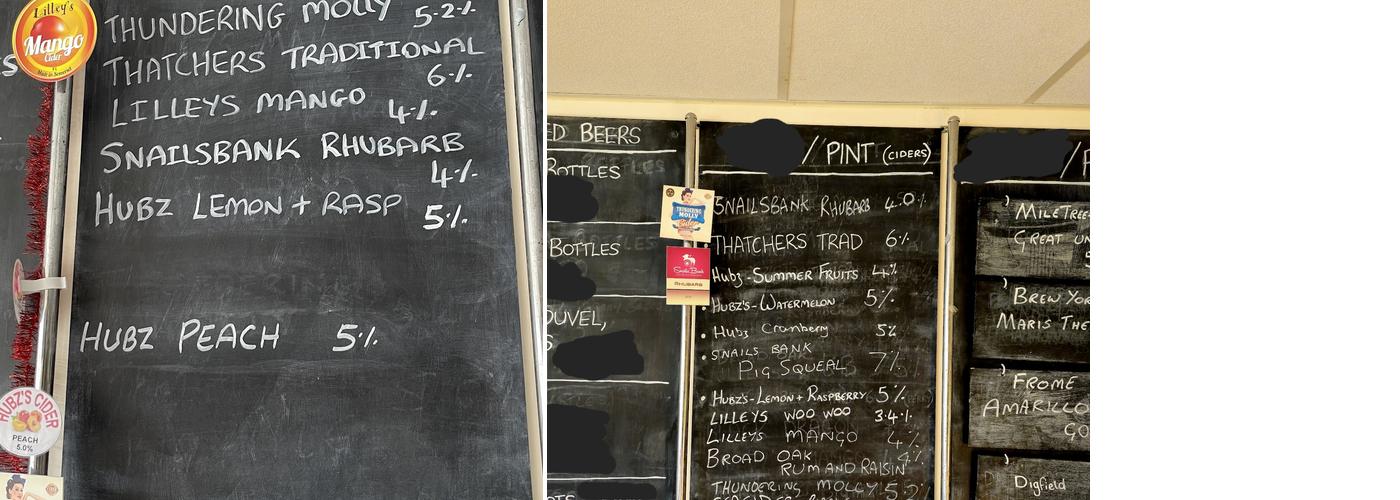 Lilley's
Mango
Cider
THUNDERING MOLLY 5.2%
THATCHERS TRADITIONAL
6%
LILLEYS MANGO 4%
SNAILSBANK RHUBARB
4%
HUBZ LEMON + RASP 5%
HUBZ PEACH 5%
HUBZ'S CIDER
PEACH
5.0%
ED BEERS
BOTTLES
BOTTLES
DUVEL,
THUNDERING
MOLLY
Cider
Snails Bank
RHUBARB
/ PINT (CIDERS)
SNAILSBANK RHUBARB 4.0%
THATCHERS TRAD 6%
Hubz - SUMMER FRUITS 4%
HUBZ'S - WATERMELON 5%
Hubz Cranberry 5%
SNAILS BANK
PIG SQUEAL 7%
HUBZ'S - LEMON + RASPBERRY 5%
LILLEYS WOO WOO 3.4%
LILLEYS MANGO 4%
BROAD OAK 4%
RUM AND RAISIN
THUNDERING MOLLY 5.2%
/ P
MILE TREE
GREAT UN
5
BREW YOR
MARIS THE
FROME
AMARILLO
GO
Digfield